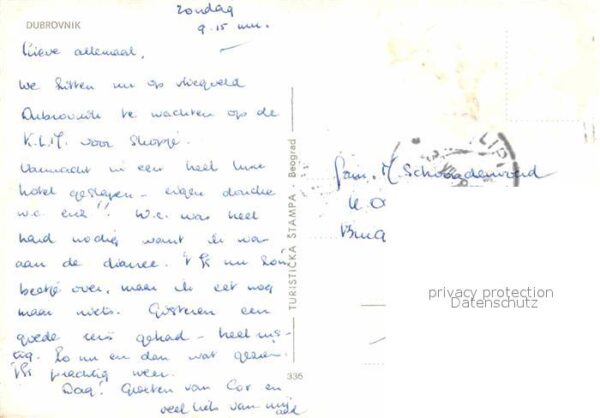 DUBROVNIK
Zondag
9.15 uur.
Lieve allemaal,
We zitten nu op vliegveld
Dubrovnik te wachten op de
K.L.M. voor Skopje.
Vannacht in een heel luxe
hotel geslapen - eigen douche
w.c. enz!! W.c. was heel
hard nodig want ik wa-
aan de diarree. 't Is nu
beetje over, maar ik eet nog
maar niets. Gisteren een
goede reis gehad - heel
Zo nu en dan wat
prachtig weer.
Dag! Groeten van Cor en
veel liefs van
TURISTIČKA ŠTAMPA - Beograd
336
Fam. Schoondenwoerd
Brug
privacy protection
Datenschutz